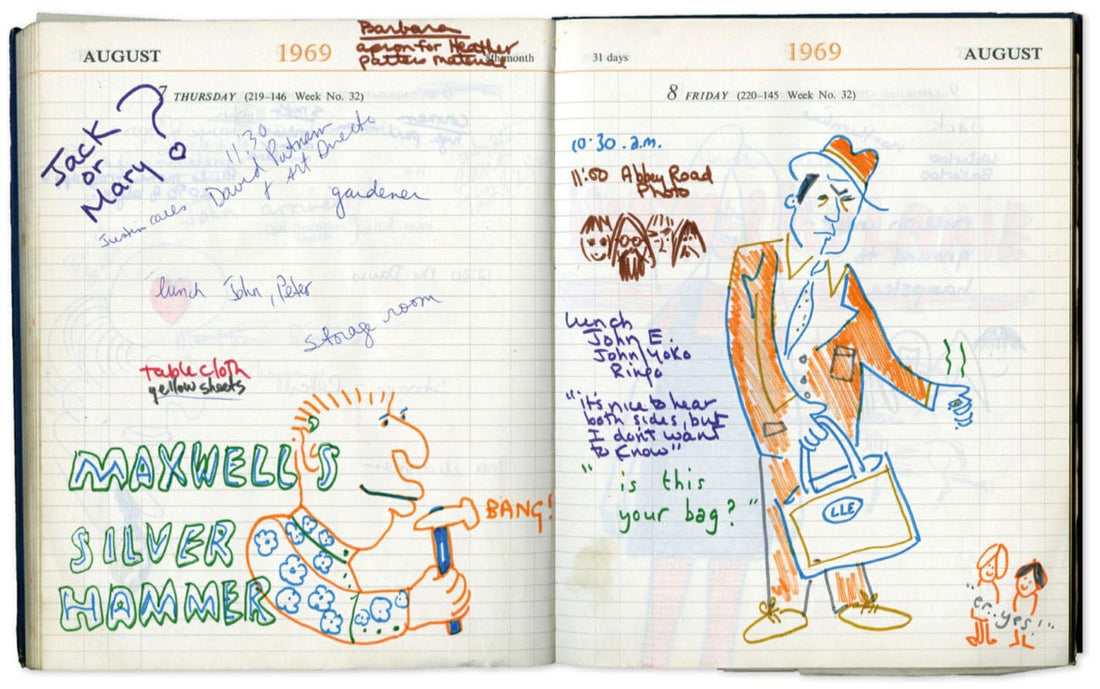 AUGUST
1969
Barbara
apron for Heather
pattern material
month
7 THURSDAY (219–146 Week No. 32)
Jack
or
Mary?
11:30
David Putnam
+ Art Director
Justin cares
gardener
lunch John, Peter
Storage room
tablecloth
yellow sheets
MAXWELL'S
SILVER
HAMMER
BANG!
31 days
1969
AUGUST
8 FRIDAY (220–145 Week No. 32)
10:30.a.m.
11:00 Abbey Road
Photo
Lunch
John E.
John Yoko
Ringo
"it's nice to hear
both sides, but
I don't want
to know"
"is this
your bag?"
LLE
"er..yes!"